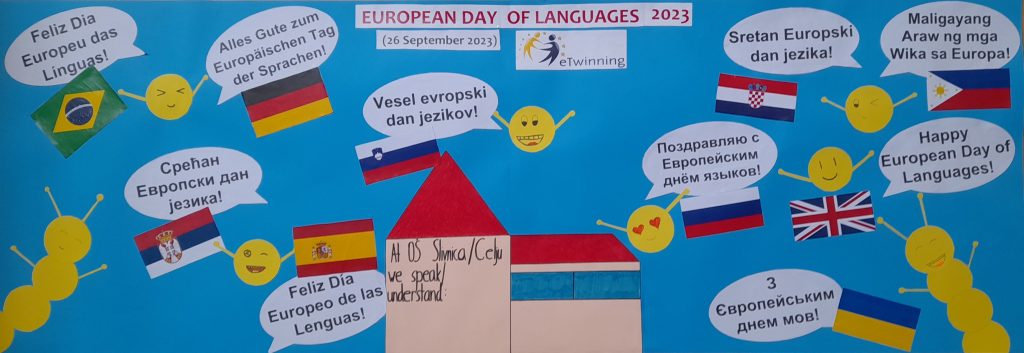 EUROPEAN DAY OF LANGUAGES 2023
(26 September 2023)
eTwinning
Feliz Día
Europeu das
Linguas!
Alles Gute zum
Europäischen Tag
der Sprachen!
Vesel evropski
dan jezikov!
Sretan Europski
dan jezika!
Maligayang
Araw ng mga
Wika sa Europa!
Срећан
Европски дан
језика!
Feliz Día
Europeo de las
Lenguas!
Поздравляю с
Европейским
днём языков!
Happy
European Day of
Languages!
З
Європейським
днем мов!
At OŠ Slivnica/Celju
we speak/
understand: